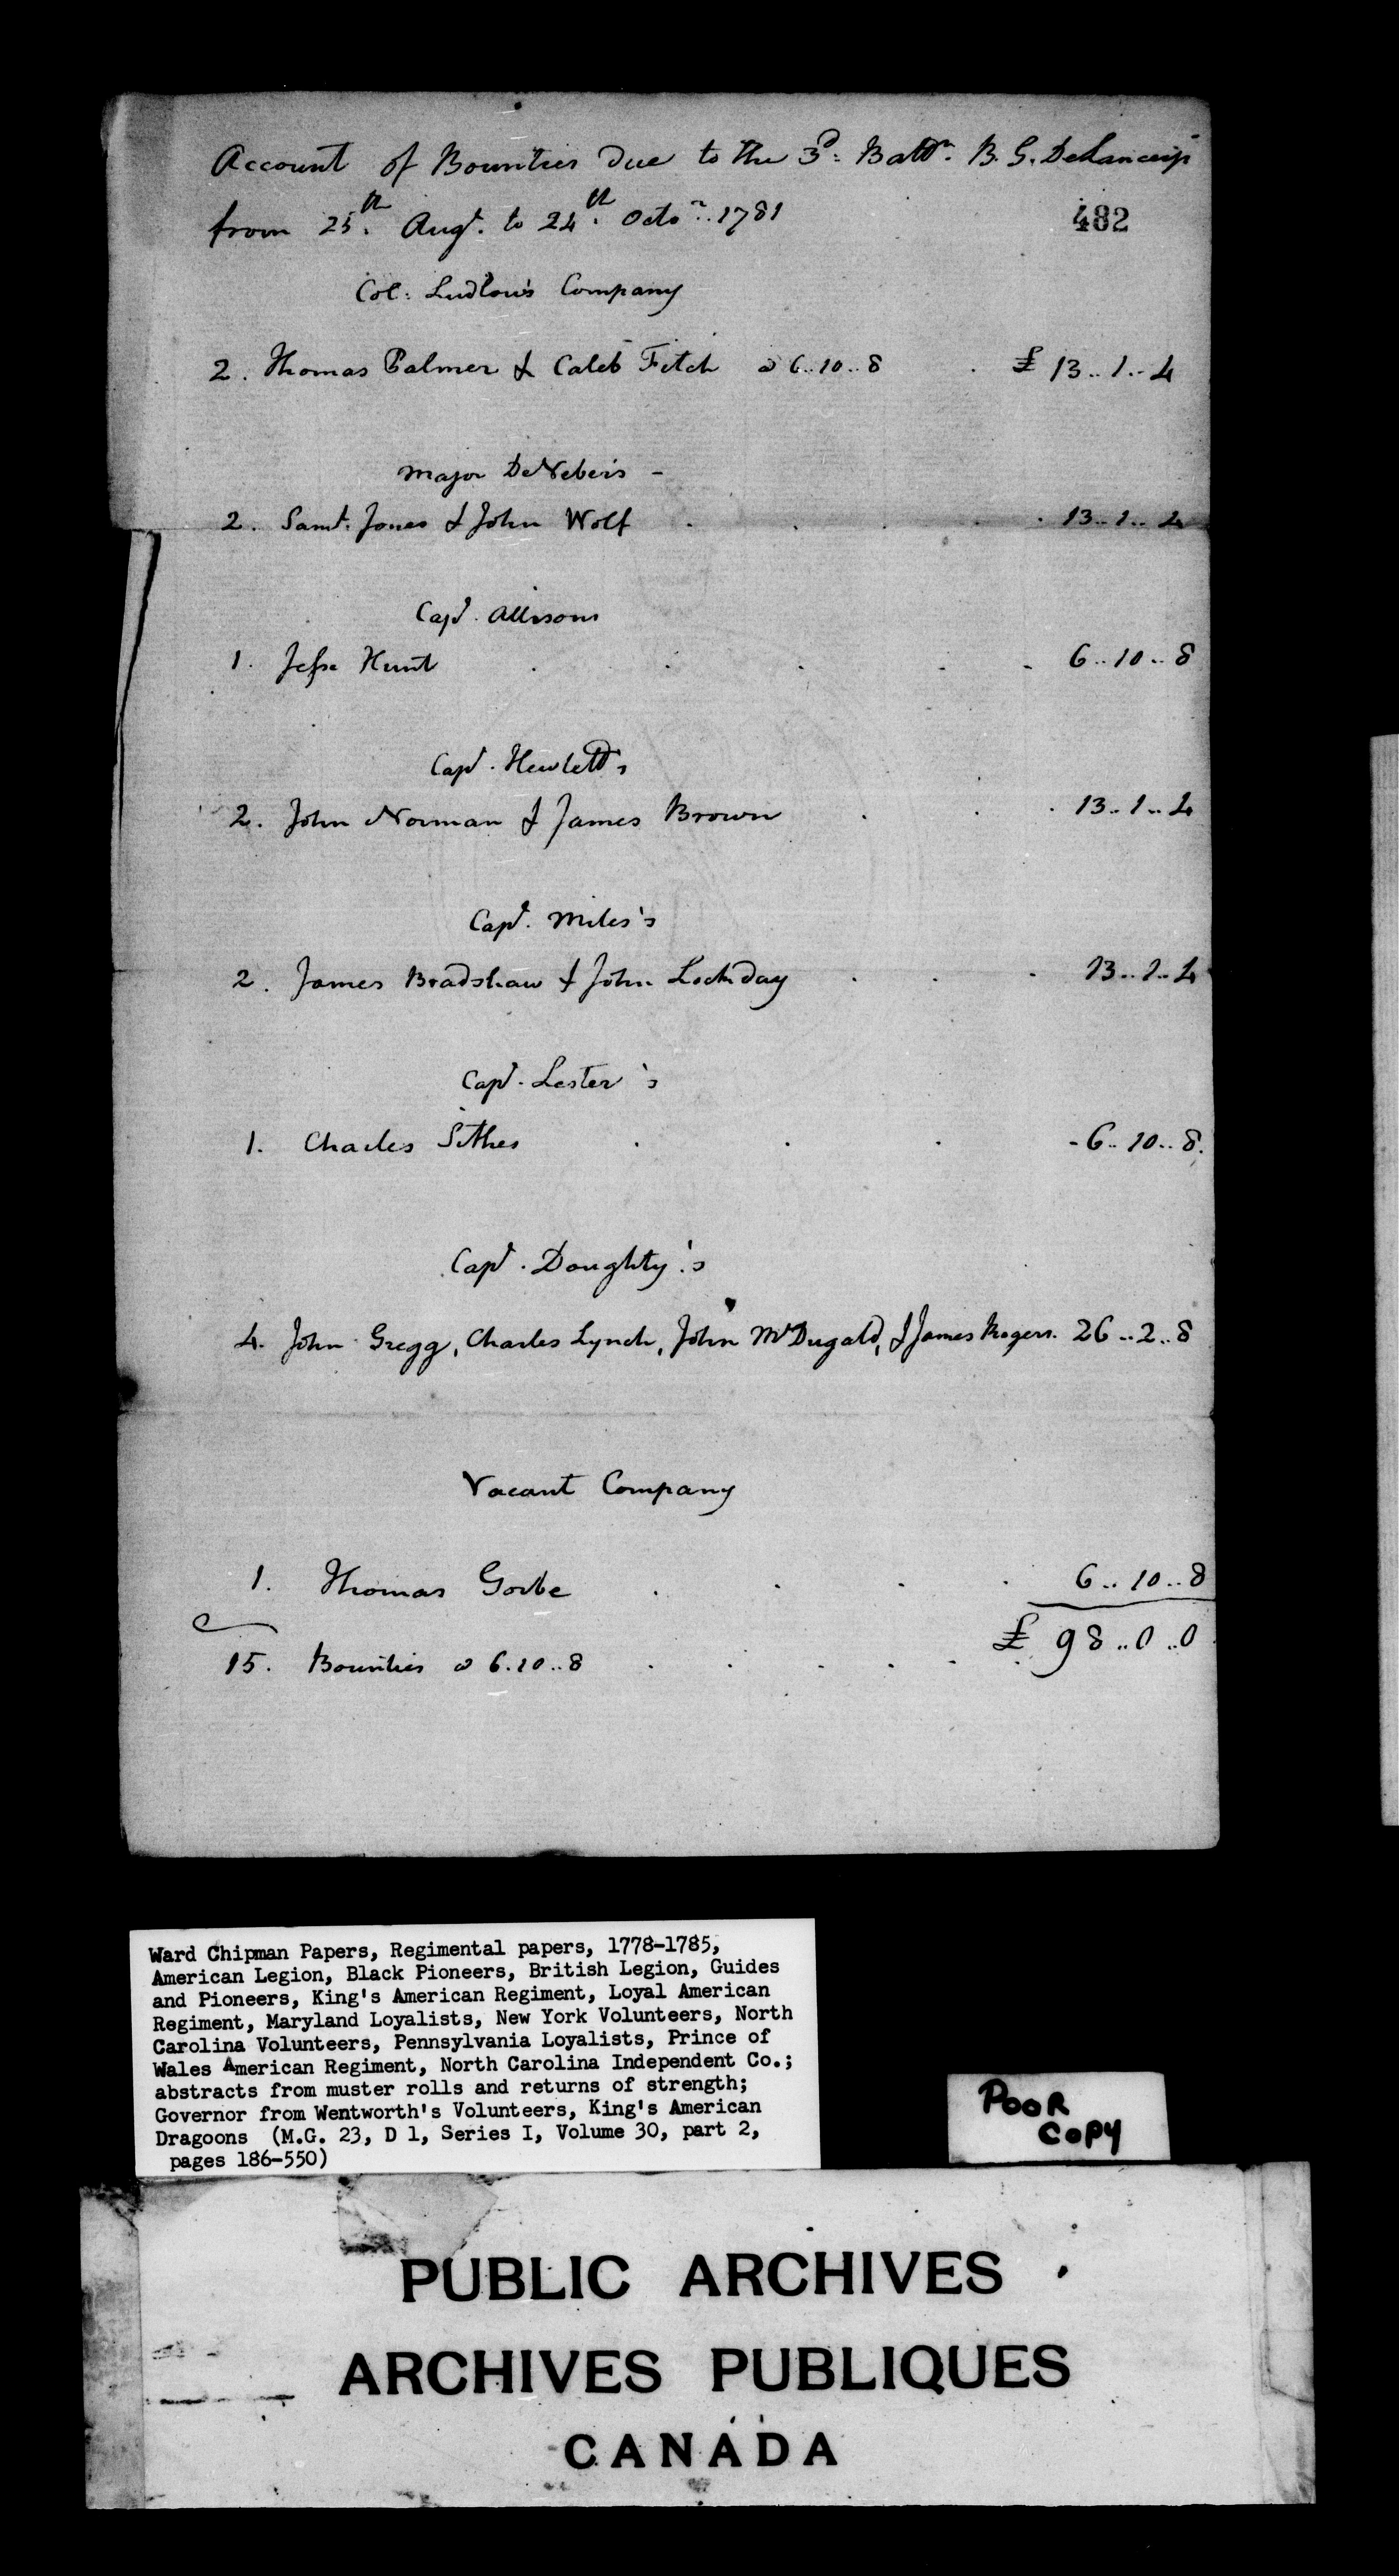 Account of Bounties due to the 3d: Battn. B. G. DeLancey's
from 25th. Augt. to 24th. Octor. 1781
482
Col: Ludlow's Company
2. Thomas Palmer & Caleb Fitch @ 6..10..8 £ 13..1..4
Major DeVeber's -
2. Saml. Jones & John Wolf 13..1..4
Capt. Allisons
1. Jesse Hunt 6..10..8
Capt. Hewlett's
2. John Norman & James Brown 13..1..4
Capt. Miles's
2. James Bradshaw & John Lockday 13..1..4
Capt. Lester's
1. Charles Sithes 6..10..8.
Capt. Doughty's
4. John Gregg, Charles Lynch, John McDugald, & James Rogers. 26..2..8
Vacant Company
1. Thomas Gorbe 6..10..8
15. Bounties @ 6.10..8 £ 98..0..0
Ward Chipman Papers, Regimental papers, 1778-1785,
American Legion, Black Pioneers, British Legion, Guides
and Pioneers, King's American Regiment, Loyal American
Regiment, Maryland Loyalists, New York Volunteers, North
Carolina Volunteers, Pennsylvania Loyalists, Prince of
Wales American Regiment, North Carolina Independent Co.;
abstracts from muster rolls and returns of strength;
Governor from Wentworth's Volunteers, King's American
Dragoons (M.G. 23, D 1, Series I, Volume 30, part 2,
pages 186-550)
POOR
COPY
PUBLIC ARCHIVES
ARCHIVES PUBLIQUES
CANADA